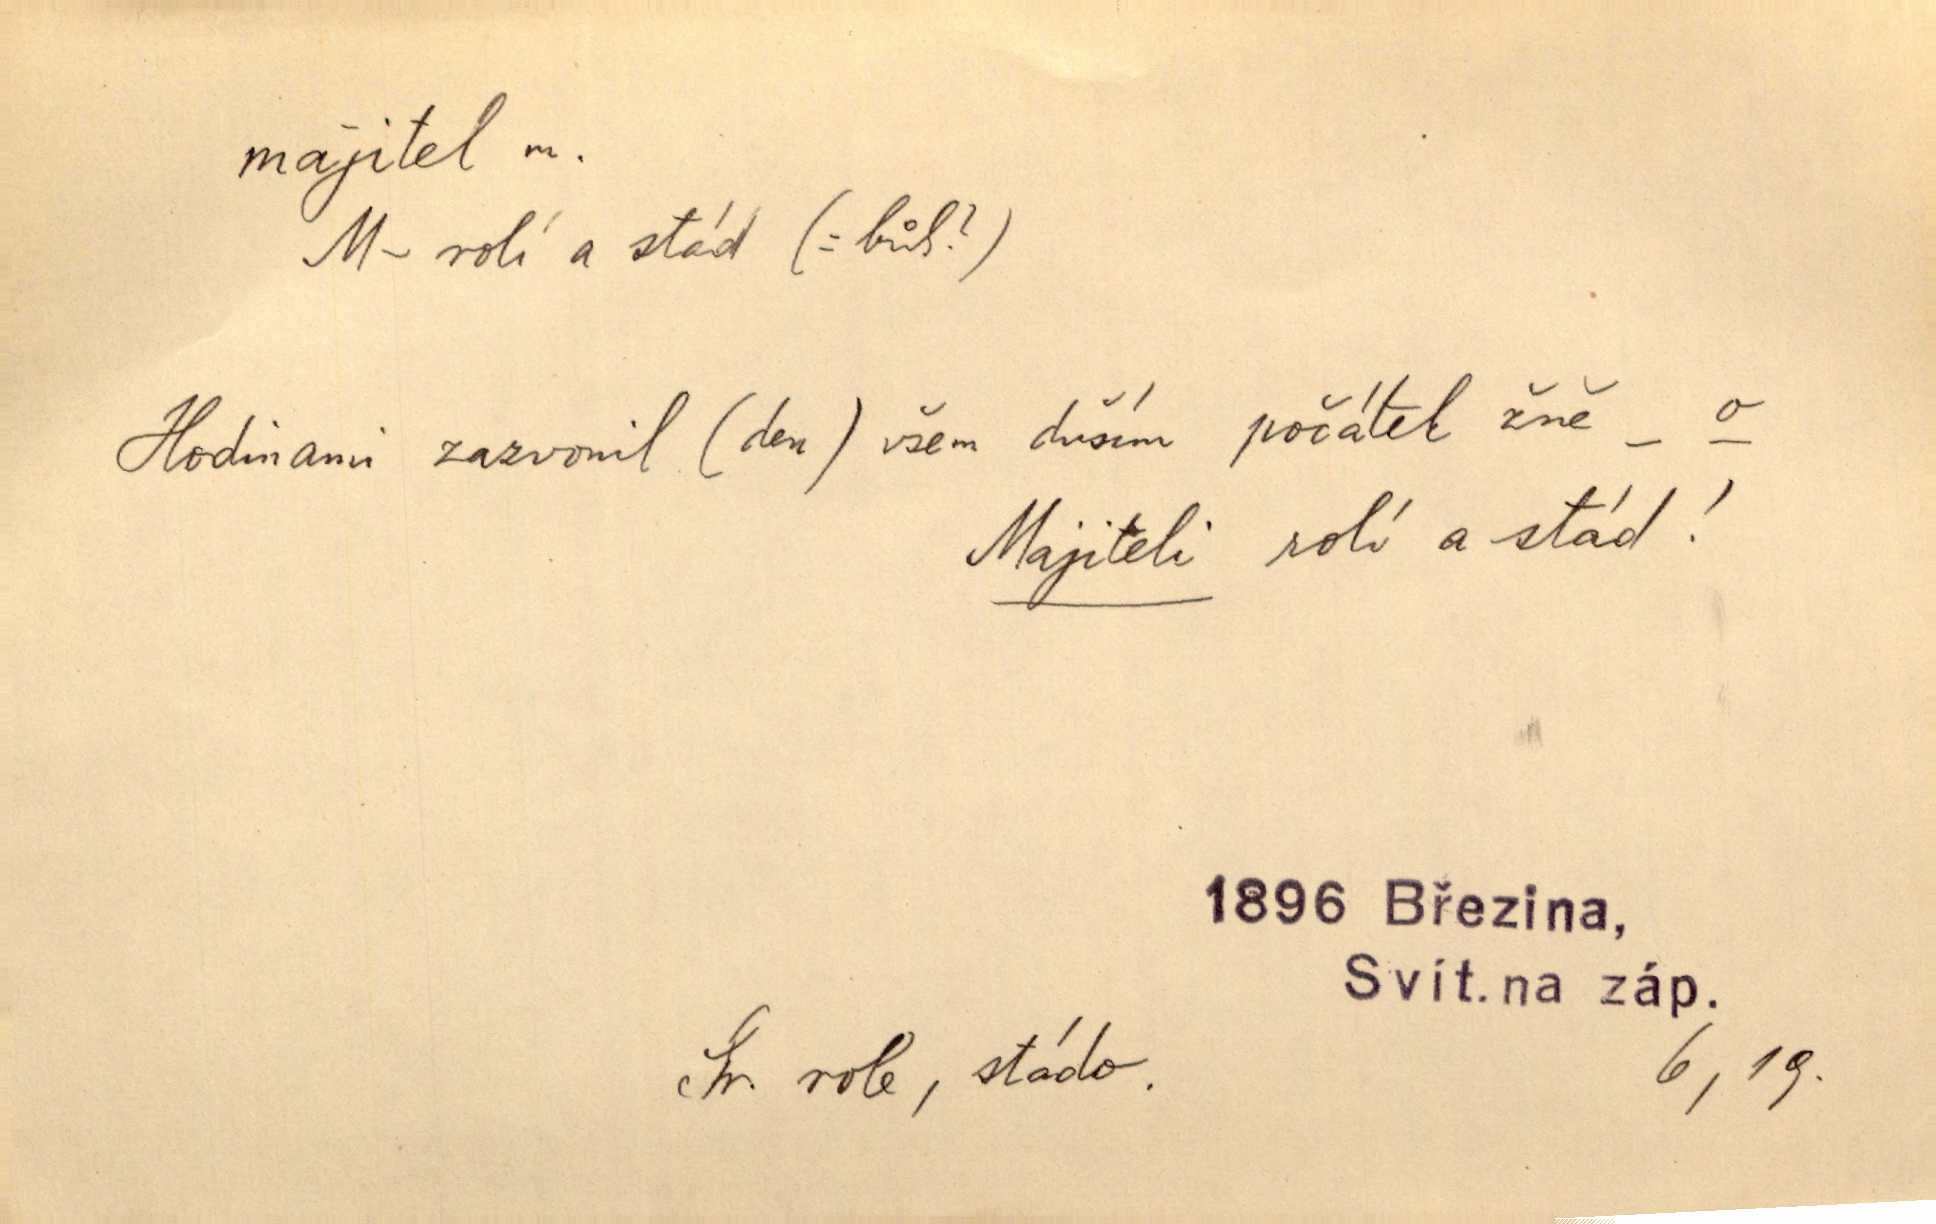 majitel m.
M- rolí a stád (= bůh?)
Hodinami zazvonil (den) všem duším počátek žně – o
Majiteli rolí a stád!
1896 Březina,
Svít. na záp.
Sr. role, stádo.
6, 19.